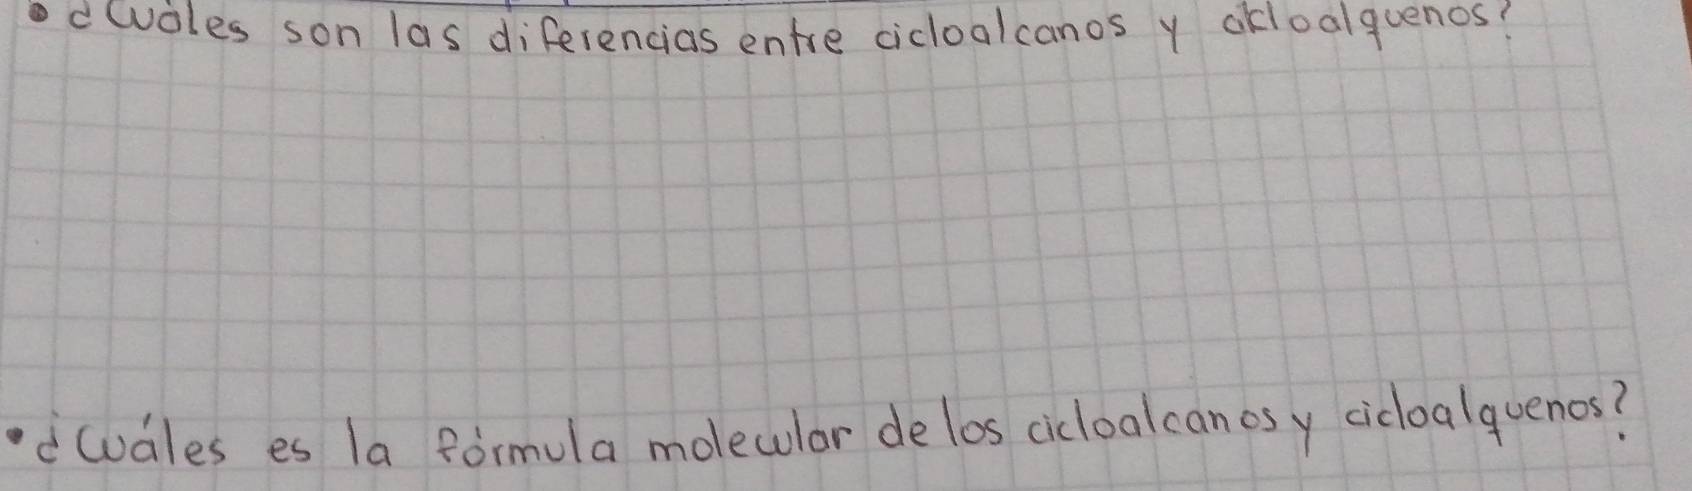 • ¿Cuáles son las diferencias entre cicloalcanos y cicloalquenos?
• ¿Cuáles es la fórmula molecular de los cicloalcanos y cicloalquenos?